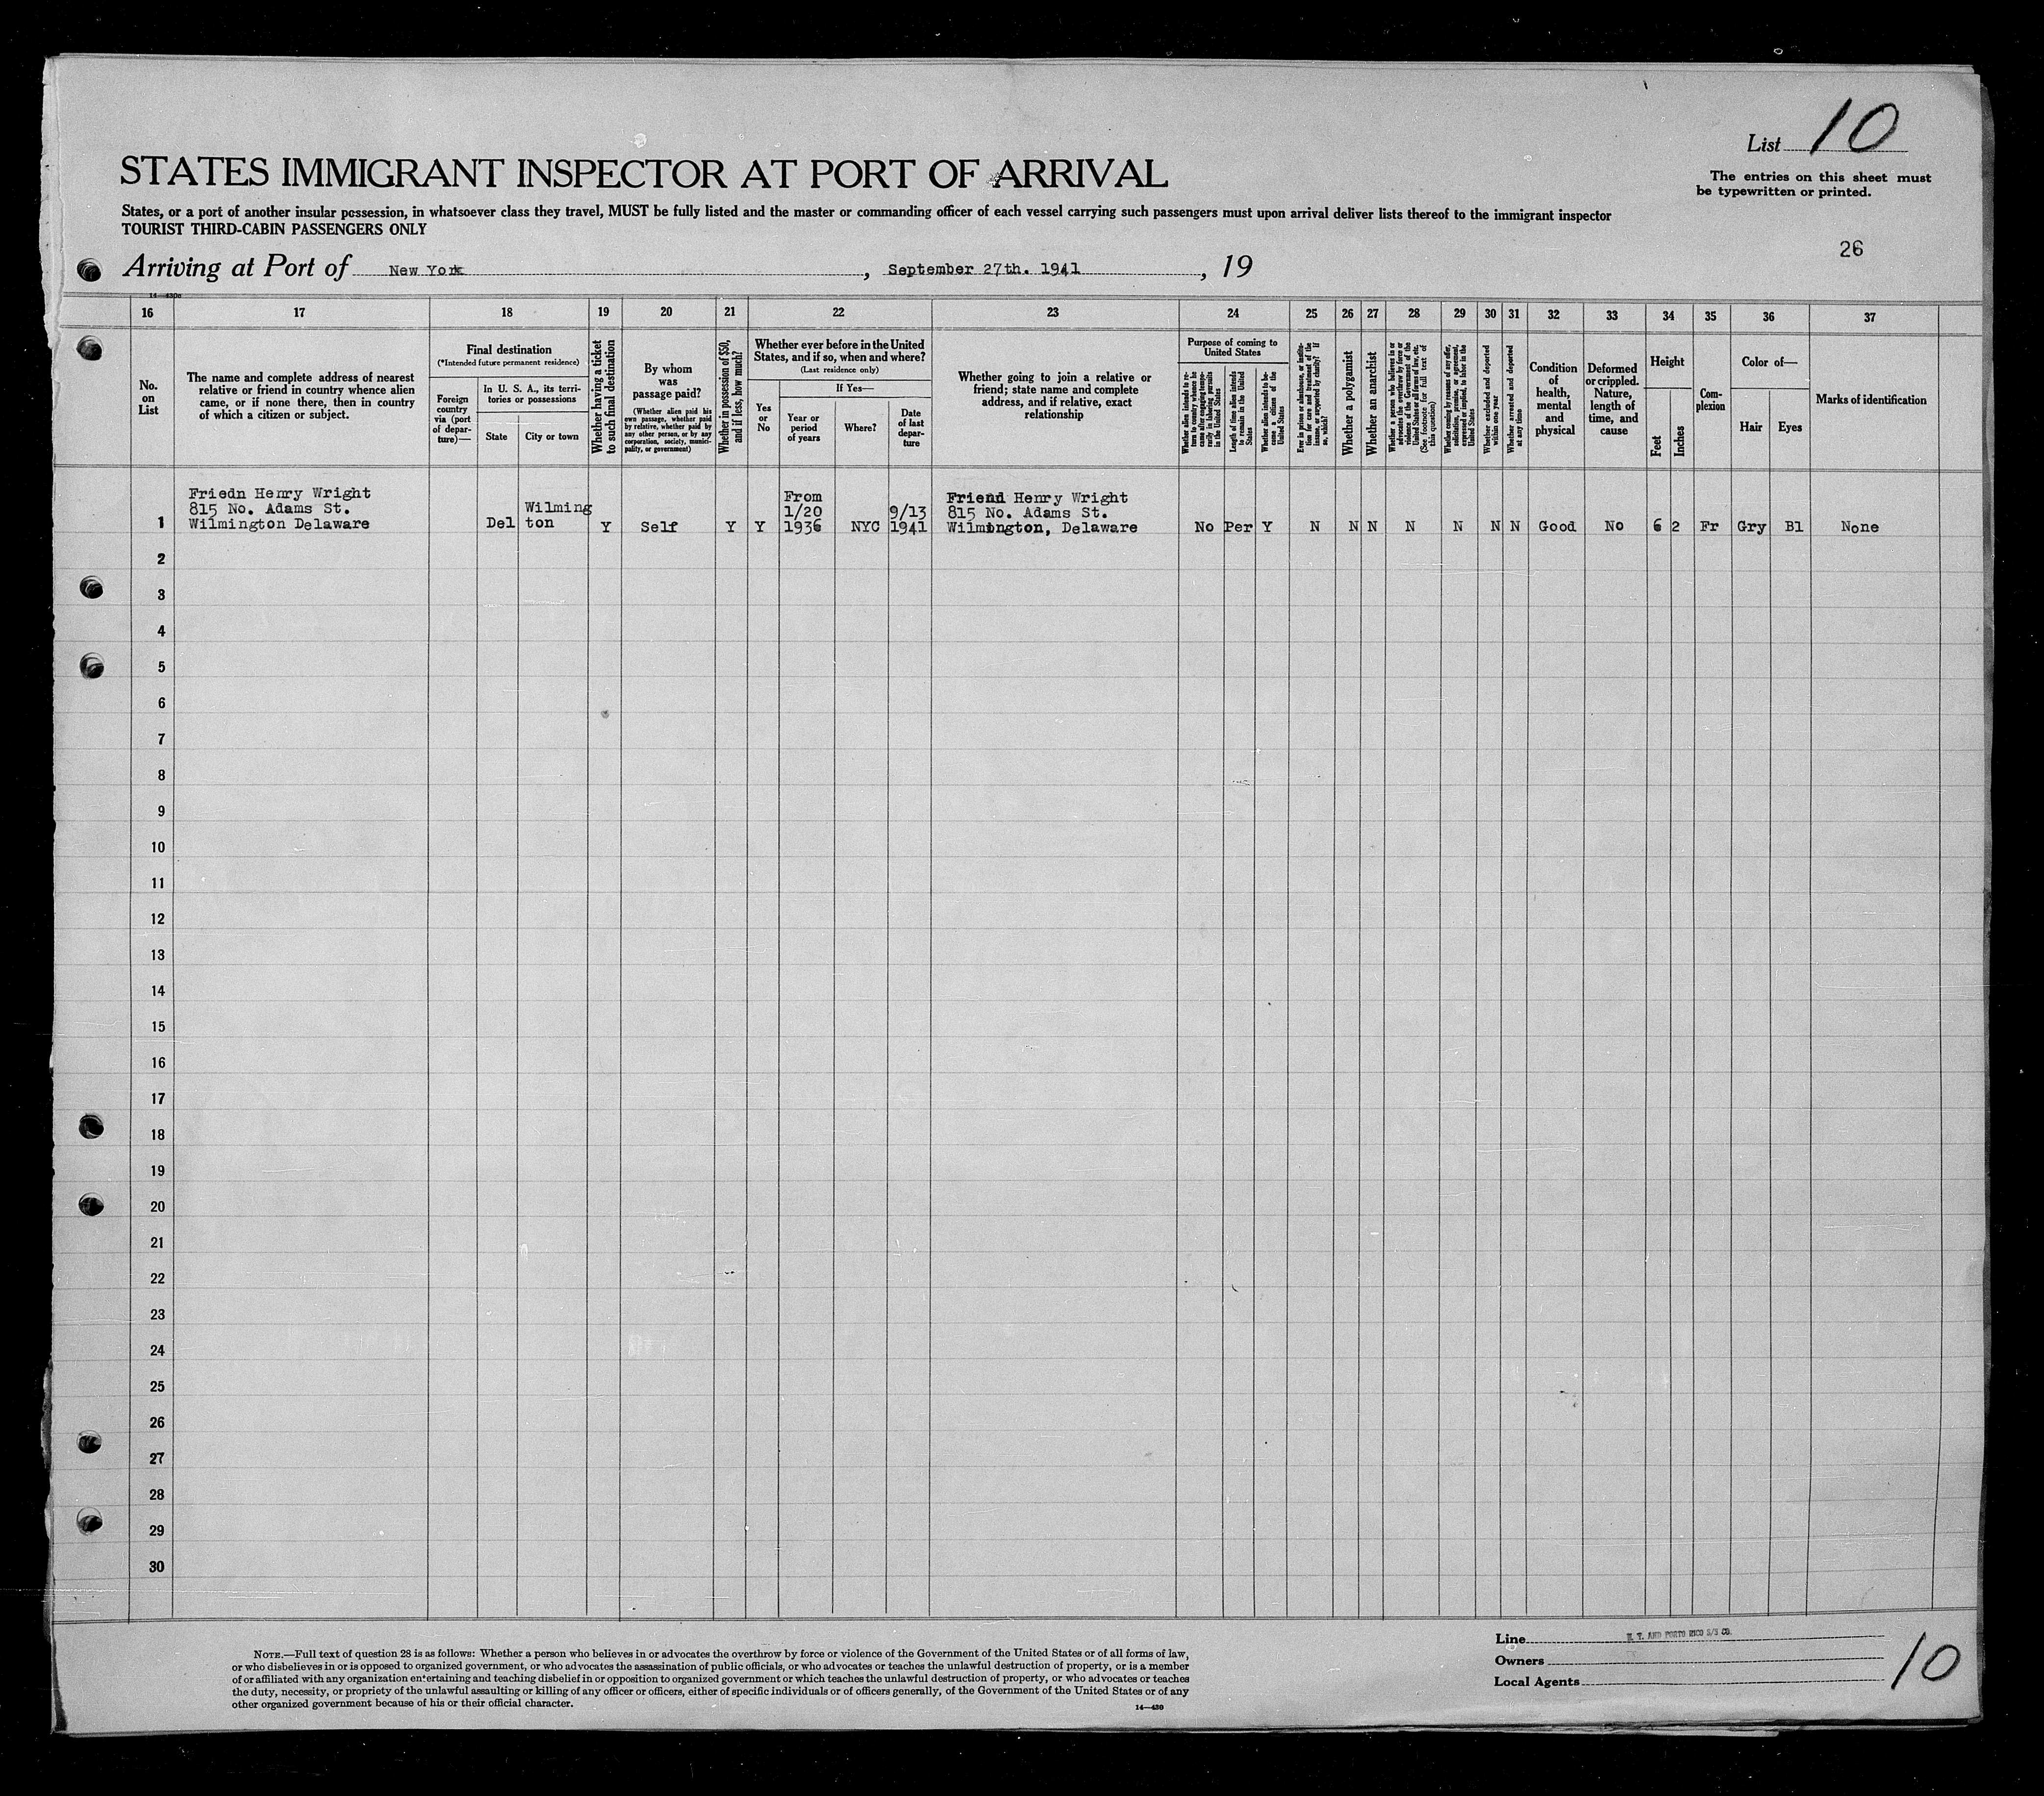 List 10
The entries on this sheet must
be typewritten or printed.
STATES IMMIGRANT INSPECTOR AT PORT OF ARRIVAL
States, or a port of another insular possession, in whatsoever class they travel, MUST be fully listed and the master or commanding officer of each vessel carrying such passengers must upon arrival deliver lists thereof to the immigrant inspector
TOURIST THIRD-CABIN PASSENGERS ONLY
26
Arriving at Port of New York, September 27th. 1941, 19
14—430a
16 17 18 19 20 21 22 23 24 25 26 27 28 29 30 31 32 33 34 35 36 37
No.
on
List
The name and complete address of nearest
relative or friend in country whence alien
came, or if none there, then in country
of which a citizen or subject.
Final destination
(*Intended future permanent residence)
Foreign
country
via (port
of depar-
ture)—
In U. S. A., its terri-
tories or possessions
State
City or town
Whether having a ticket
to such final destination
By whom
was
passage paid?
(Whether alien paid his
own passage, whether paid
by relative, whether paid by
any other person, or by any
corporation, society, munici-
pality, or government)
Whether in possession of $50,
and if less, how much?
Whether ever before in the United
States, and if so, when and where?
(Last residence only)
Yes
or
No
If Yes—
Year or
period
of years
Where?
Date
of last
depar-
ture
Whether going to join a relative or
friend; state name and complete
address, and if relative, exact
relationship
Purpose of coming to
United States
Whether alien intends to re-
turn to country whence he
came after engaging tempo-
rarily in laboring pursuits
in the United States
Length of time alien intends
to remain in the United
States
Whether alien intends to be-
come a citizen of the
United States
Ever in prison or almshouse, or institu-
tion for care and treatment of the
insane, or supported by charity? If
so, which?
Whether a polygamist
Whether an anarchist
Whether a person who believes in or
advocates the overthrow by force or
violence of the Government of the
United States or all forms of law, etc.
(See footnote for full text of
this question)
Whether coming by reasons of any offer,
solicitation, promise, or agreement,
expressed or implied, to labor in the
United States
Whether excluded and deported
within one year
Whether arrested and deported
at any time
Condition
of
health,
mental
and
physical
Deformed
or crippled.
Nature,
length of
time, and
cause
Height
Feet
Inches
Com-
plexion
Color of—
Hair
Eyes
Marks of identification
Friedn Henry Wright Wilming From 9/13 Friend Henry Wright
815 No. Adams St. 1/20 815 No. Adams St.
1 Wilmington Delaware Del ton Y Self Y Y 1936 NYC 1941 Wilmington, Delaware No Per Y N N N N N N N Good No 6 2 Fr Gry Bl None
2
3
4
5
6
7
8
9
10
11
12
13
14
15
16
17
18
19
20
21
22
23
24
25
26
27
28
29
30
NOTE.—Full text of question 28 is as follows: Whether a person who believes in or advocates the overthrow by force or violence of the Government of the United States or of all forms of law,
or who disbelieves in or is opposed to organized government, or who advocates the assassination of public officials, or who advocates or teaches the unlawful destruction of property, or is a member
of or affiliated with any organization entertaining and teaching disbelief in or opposition to organized government or which teaches the unlawful destruction of property, or who advocates or teaches
the duty, necessity, or propriety of the unlawful assaulting or killing of any officer or officers, either of specific individuals or of officers generally, of the Government of the United States or of any
other organized government because of his or their official character.
14—430
Line N. Y. AND PORTO RICO S/S CO.
Owners
Local Agents
10